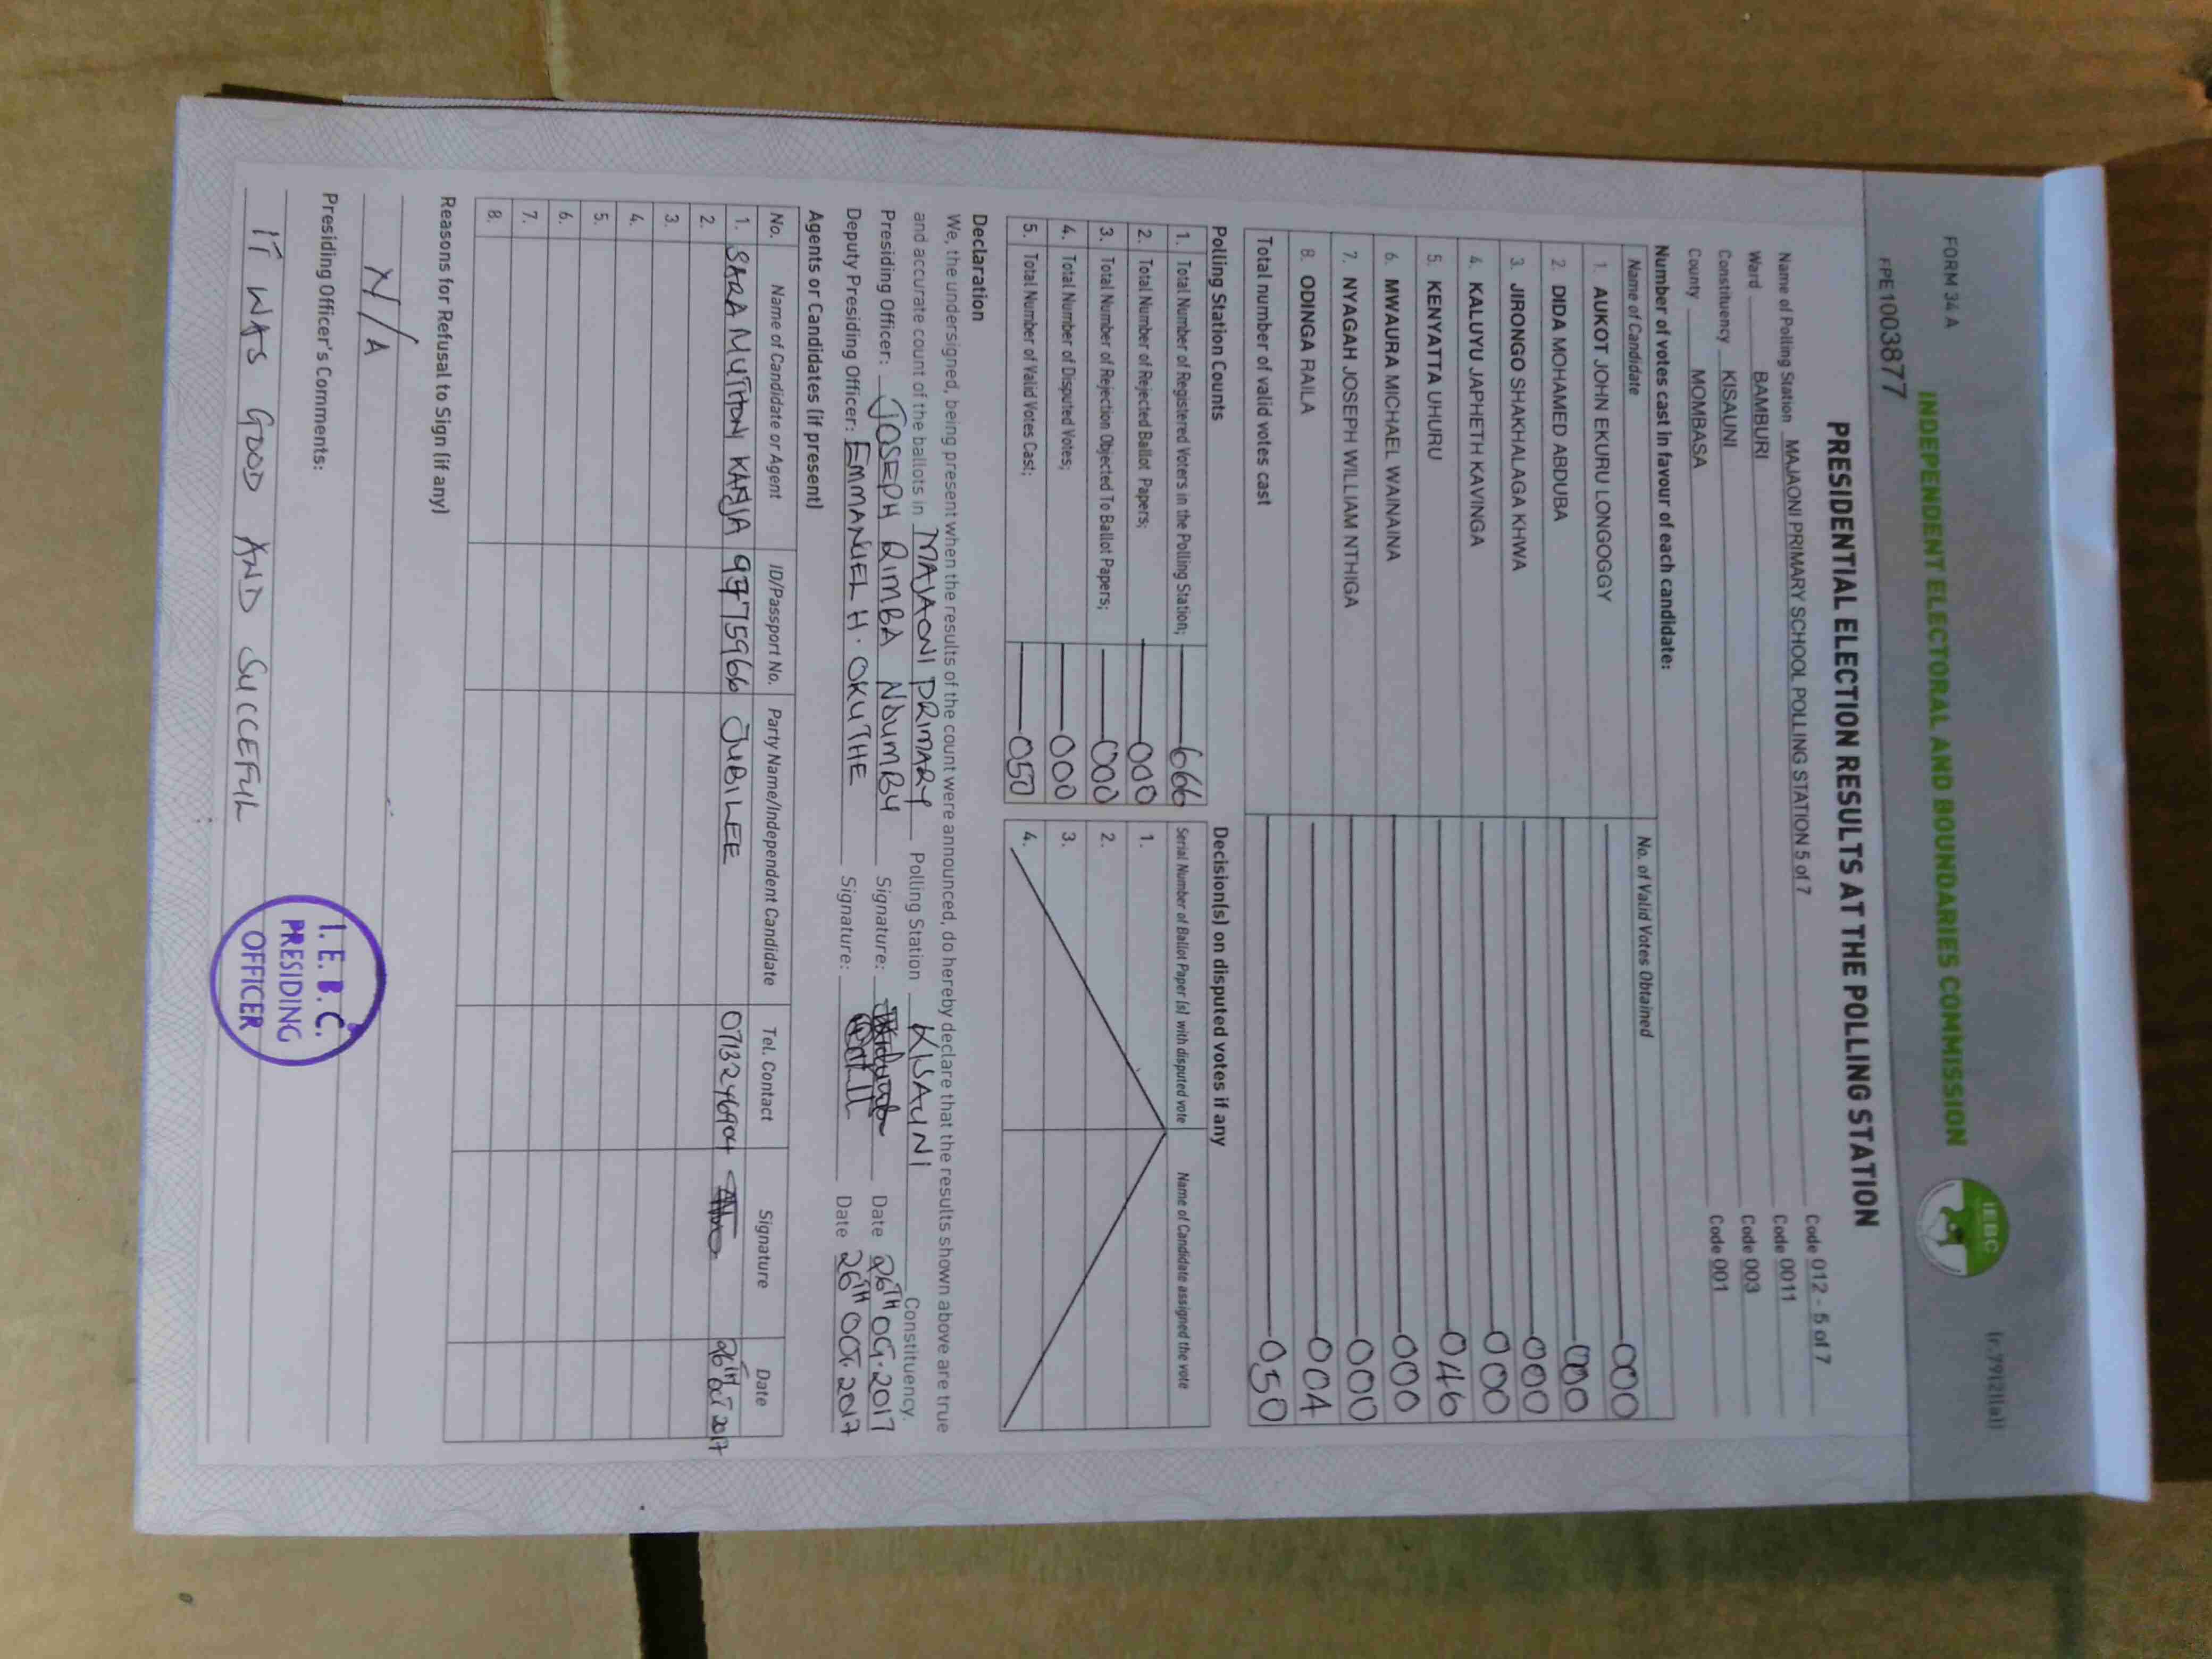 FORM 34 A
(r.79(2)(a))
INDEPENDENT ELECTORAL AND BOUNDARIES COMMISSION
IEBC
FPE1003877
PRESIDENTIAL ELECTION RESULTS AT THE POLLING STATION
Name of Polling Station MAJAONI PRIMARY SCHOOL POLLING STATION 5 of 7 Code 012 - 5 of 7
Ward BAMBURI Code 0011
Constituency KISAUNI Code 003
County MOMBASA Code 001
Number of votes cast in favour of each candidate:
Name of Candidate No. of Valid Votes Obtained
1. AUKOT JOHN EKURU LONGOGGY 000
2. DIDA MOHAMED ABDUBA 000
3. JIRONGO SHAKHALAGA KHWA 000
4. KALUYU JAPHETH KAVINGA 000
5. KENYATTA UHURU 046
6. MWAURA MICHAEL WAINAINA 000
7. NYAGAH JOSEPH WILLIAM NTHIGA 000
8. ODINGA RAILA 004
Total number of valid votes cast 050
Polling Station Counts Decision(s) on disputed votes if any
1. Total Number of Registered Voters in the Polling Station; 666 Serial Number of Ballot Paper (s) with disputed vote Name of Candidate assigned the vote
2. Total Number of Rejected Ballot Papers; 000 1.
3. Total Number of Rejection Objected To Ballot Papers; 000 2.
4. Total Number of Disputed Votes; 000 3.
5. Total Number of Valid Votes Cast; 050 4.
Declaration
We, the undersigned, being present when the results of the count were announced, do hereby declare that the results shown above are true
and accurate count of the ballots in MAJAONI PRIMARY Polling Station KISAUNI Constituency.
Presiding Officer: JOSEPH RIMBA NDUMBU Signature: Date 26TH OCT. 2017
Deputy Presiding Officer: EMMANUEL H. OKUTHE Signature: Date 26TH OCT. 2017
Agents or Candidates (if present)
No. Name of Candidate or Agent ID/Passport No. Party Name/Independent Candidate Tel. Contact Signature Date
1. SARA MUTITONI KANJA 97775966 JUBILEE 0713246904 26TH OCT 2017
2.
3.
4.
5.
6.
7.
8.
Reasons for Refusal to Sign (if any)
N/A
Presiding Officer's Comments:
IT WAS GOOD AND SUCCEFUL
I.E.B.C.
PRESIDING
OFFICER